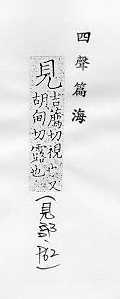 四聲篇海
見吉薦切視也又
胡甸切露也
(見部·P62)